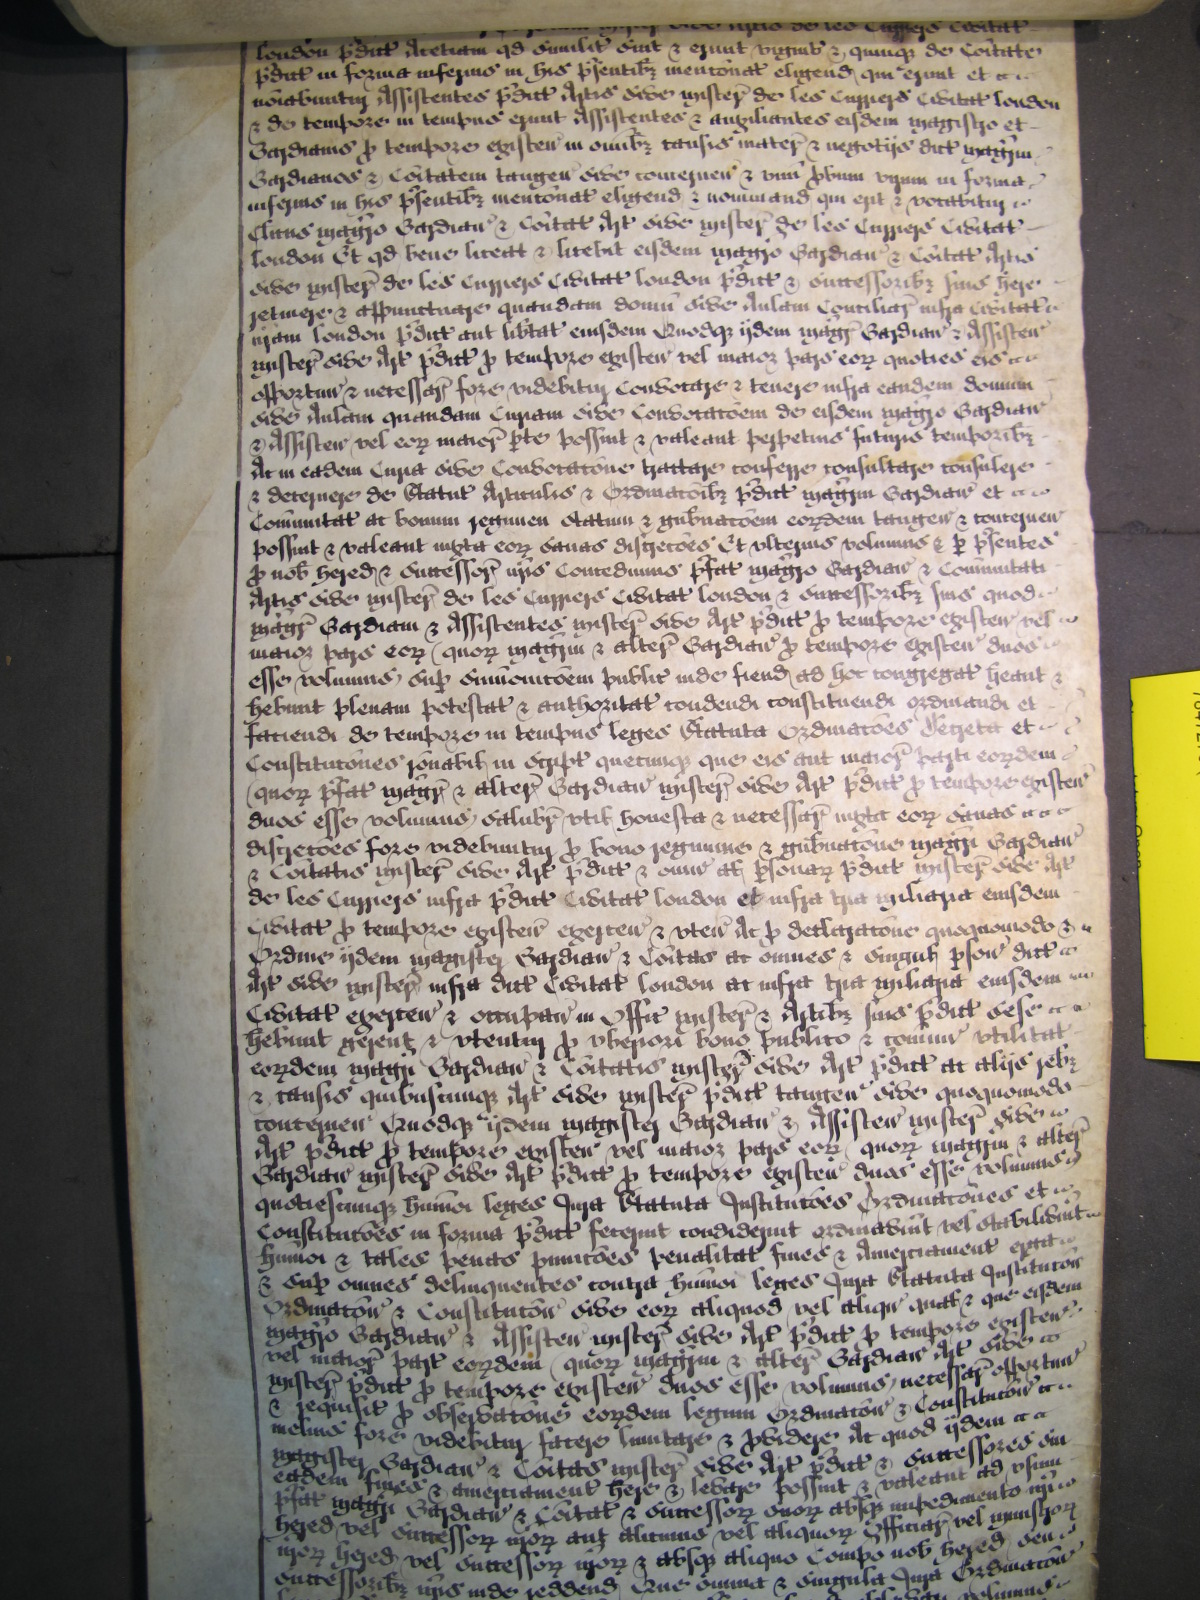 sive Artis de les Curriers Civitat
london p̄dict Acetiam qd similit sint & erunt viginti & quinqꝫ de Cōitate
p̄dict in forma inferius in his p̄sentibꝫ menc̄onat eligend qui erunt et
noīabuntur Assistentes p̄dict Artis sive mister̄ de les Curriers Civitat london
& de tempore in tempus erunt Assistentes & auxiliantes eisdem magistro et
Gardianis p̄ tempore existen̄ in omībꝫ causis mater̄ & negotijs dict magr̄m
Gardianos & Cōitatem tangen̄ sive concernen̄ & vnū p̄bum virum in forma
inferius in his p̄sentibꝫ menc̄onat eligend & nominand qui erit & vocabitur
Clicus magr̄o Gardian̄ & Cōitat Art sive mister̄ de les Curriers Civitat
london Et qd bene liceat & licebit eisdem magr̄o Gardian̄ & Cōitat Artis
sive mister̄ de les Curriers Civitat london p̄dict & Successoribꝫ suis here
retinere & appunctuare quandam domū sive Aulam Conciliar̄ infra Civitat
nr̄am london p̄dict aut lib̄tat eiusdem Quodqꝫ ijdem magr̄ Gardian̄ & Assisten̄
mister̄ sive Art p̄dict p̄ tempore existen̄ vel maior pars eoꝝ quoties eis
opportun̄ & necessar̄ fore videbitur Convocare & tenere infra eandem domum
sive Aulam quandam Curiam sive Convocac̄oem de eisdem magr̄o Gardian̄
& Assisten̄ vel eoꝝ maior̄ p̄te possint & valeant perpetuis futuris temporibꝫ
Ac in eadem Curia sive Convocac̄one tractare conferre consultare consulere
& decernere de Statut Articulis & Ordinac̄oibꝫ p̄dict magr̄m Gardian̄ et
Com̄unitat ac bonum regimen statum & gub̄nac̄oem eoꝝdem tangen̄ & concernen̄
possint & valeant iuxta eoꝝ sanas discrec̄oes Et vlterius volumus & p̱ p̄sentes
p̄ nob̄ hered & Successor̄ nr̄is Concedimus p̄fat magr̄o Gardian̄ & Com̄unitati
Artis sive mister̄ de les Curriers Civitat london & Successoribꝫ suis quod
magr̄ Gardiani & Assistentes mister̄ sive Art p̄dict p̄ tempore existen̄ vel
maior pars eoꝝ (quoꝝ magr̄m & alter̄ Gardian̄ p̄ tempore existen̄ duos
esse volumus) sup̱ sum̄onic̄oem publice inde fiend ad hoc congregat heant &
hēbunt plenam potestat & authoritat condendi constituendi ordinandi et
faciendi de tempore in tempus leges Statuta Ordinac̄oes Decreta et
Constituc̄ones rōnabil̄ in script quecunqꝫ que eis aut maior̄ parti eoꝝdem
(quoꝝ p̄fat magr̄ & alter̄ Gardian̄ mister̄ sive Art p̄dict p̄ tempore existen̄
duos esse volumus) salubr̄ vtil̄ honesta & necessar̄ iuxta eoꝝ sanas
discrec̄oes fore videbuntur p̄ bono regimine & gub̄nac̄one magr̄i Gardian̄
& Cōitatis mister̄ sive Art p̄dict & omn̄ al̄ p̱sonaꝝ p̄dict mister̄ sive Art
de les Curriers infra p̄dict Civitat london et infra tria miliaria eiusdem
Civitat p̄ tempore existen̄ exercen̄ & vten̄ Ac p̄ declarac̄one quoquomodo &
Ordine ijdem magister Gardian̄ & Cōitas ac omnes & singul̄ p̱son̄ dict
Art sive mister̄ infra dict Civitat london ac infra tria miliaria eiusdem
Civitat exercen̄ & occupan̄ in Offic̄ mister̄ & Artibꝫ suis p̄dict sese
hēbunt gerent & vtentur p̄ vberiori bono publico & com̄un̄ vtilitat
eoꝝdem magr̄i Gardian̄ & Cōitatis mister̄ sive Art p̄dict ac alijs rebꝫ
& causis quibuscunqꝫ Art sive mister̄ p̄dict tangen̄ sive quoquomodo
concernen̄ Quodqꝫ ijdem magister Gardian̄ & Assisten̄ mister̄ sive
Art p̄dict p̄ tempore existen̄ vel maior pars eoꝝ (quoꝝ magr̄m & alter̄
Gardian̄ mister̄ sive Art p̄dict p̄ tempore existen̄ duos esse volumus)
quotiescunqꝫ hm̄oi leges Jura Statuta Instituc̄oes Ordinac̄ones et
Constituc̄oes in forma p̄dict fecerint condiderint ordinav̄int vel stabiliv̄int
hm̄oi & tales penas punic̄oes penalitat fines & Amerciament erga
& sup̱ omnes delinquentes contra hm̄oi leges Jura Statuta Instituc̄on̄
Ordinac̄on̄ & Constituc̄on̄ sive eoꝝ aliquod vel aliqū qual̄ & que eisdem
magr̄o Gardian̄ & Assisten̄ mister̄ sive Art p̄dict p̄ tempore existen̄
vel maior̄ part eoꝝdem (quoꝝ magr̄m & alter̄ Gardian̄ Art sive
mister̄ p̄dict p̄ tempore existen̄ duos esse volumus) necessar̄ opportun̄
& requisit p̄ observac̄one eoꝝdem legum Ordinac̄on̄ & Constituc̄on̄
melius fore videbitur facere limitare & p̄videre Ac quod ijdem
magister Gardian̄ & Cōitas mister̄ sive Art p̄dict & Successores sui
eadem fines & amerciament here & levare possint & valeant ad vsum
p̄fat magr̄i Gardian̄ & Cōitat & Successoꝝ suoꝝ absqꝫ impedimento nr̄i
hered vel Successoꝝ nr̄oꝝ aut alicuius vel aliquoꝝ Officiar̄ vel ministroꝝ
nr̄oꝝ hered vel Successoꝝ nr̄oꝝ & absqꝫ aliquo Compo nob̄ hered seu
Successoribꝫ nr̄is inde reddend Que omnia & singula Jura Ordinac̄on̄